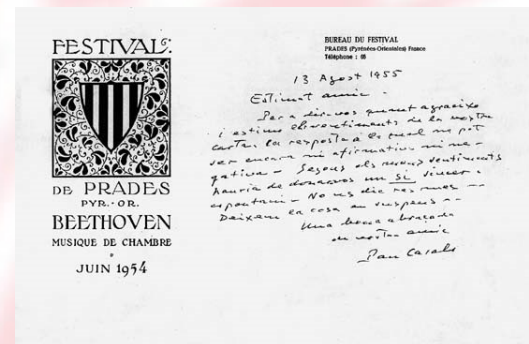 FESTIVAL
DE PRADES
PYR.-OR.
BEETHOVEN
MUSIQUE DE CHAMBRE
JUIN 1954
BUREAU DU FESTIVAL
PRADES (Pyrénées-Orientales) France
Téléphone :
13 Agost 1955
Estimat amic -
Per a dir-vos quant agraeixo
i estimo els sentiments de la vostra
carta; la resposta a la qual no pot
ser encara ni afirmativa ni ne-
gativa - Segons els meus sentiments
hauria de donar-vos un si sincer i
espontani - No us dic res mes --
Deixem la cosa en suspens --
Una bona abraçada
del vostre amic
Pau Casals